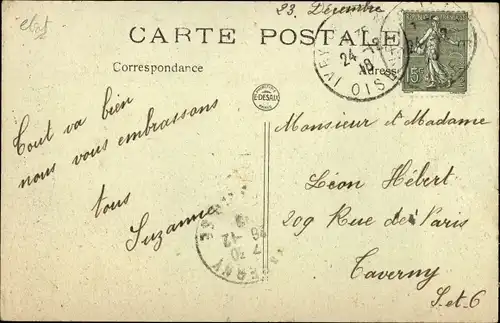 ebay
23. Décembre
CARTE POSTALE
Correspondance
Adresse
24 -12
18
OISE
15
E.DESAIX
Tout va bien
nous vous embrassons
tous
Suzanne
Monsieur et Madame
Léon Hébert
209 Rue de Paris
Taverny
S.et-O
TAVERNY